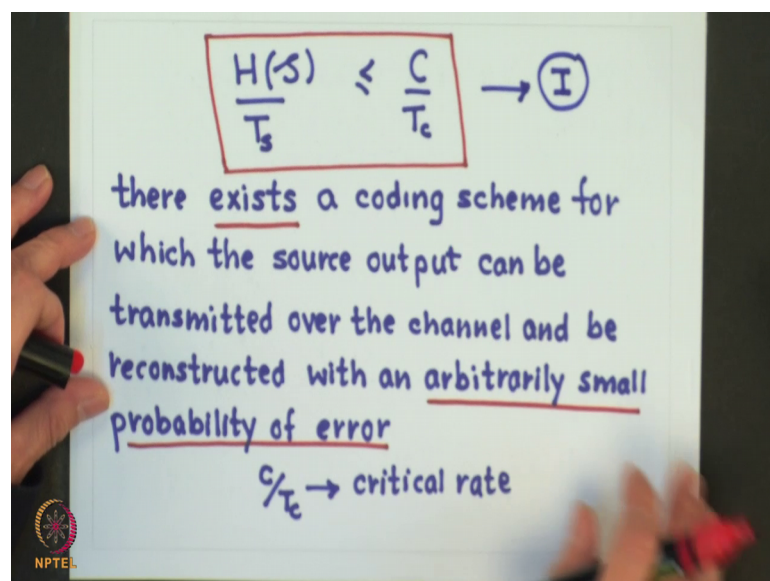 H(S)/Ts ≤ C/Tc → I
there exists a coding scheme for
which the source output can be
transmitted over the channel and be
reconstructed with an arbitrarily small
probability of error
C/Tc → critical rate
NPTEL